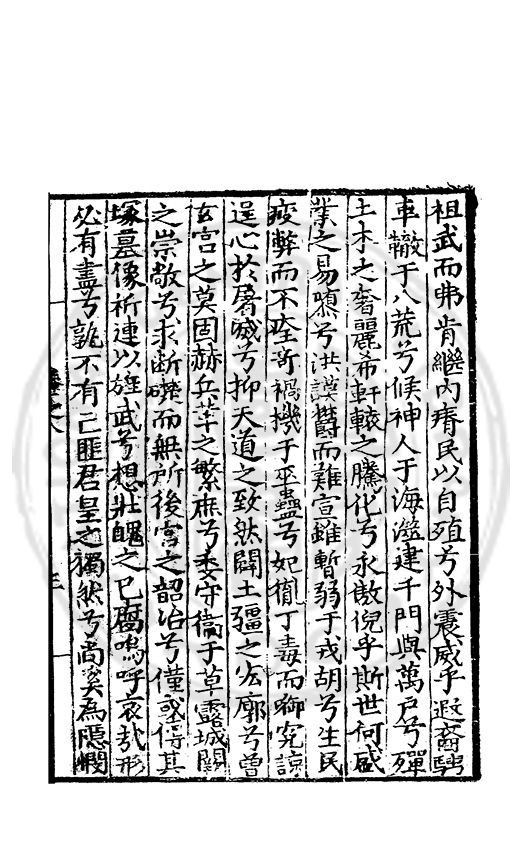 祖武而弗肯繼内瘠民以自殖兮外震威乎遐裔騁
車轍于八荒兮候神人于海澨建千門與萬戸兮殫
土木之奢麗希軒轅之騰化兮永傲倪乎斯世何盛
業之易隳兮洪謨欝而難宣雖暫弱于戎胡兮生民
疲弊而不痊寄禍機于巫蠱兮妃胤丁毒而啣寃諒
逞心於屠滅兮抑天道之致然闢土疆之宏廓兮曽
玄宫之莫固赫丘茔之繁廡兮委守衞于草露城闕
之崇敞兮求断礎而無所後宫之韶冶兮僅或得其
塚墓像祈連以旌武兮想壯魄之已腐嗚呼哀哉形
必有盡兮孰不有亡匪君皇之獨然兮尚奚為隱憫
三